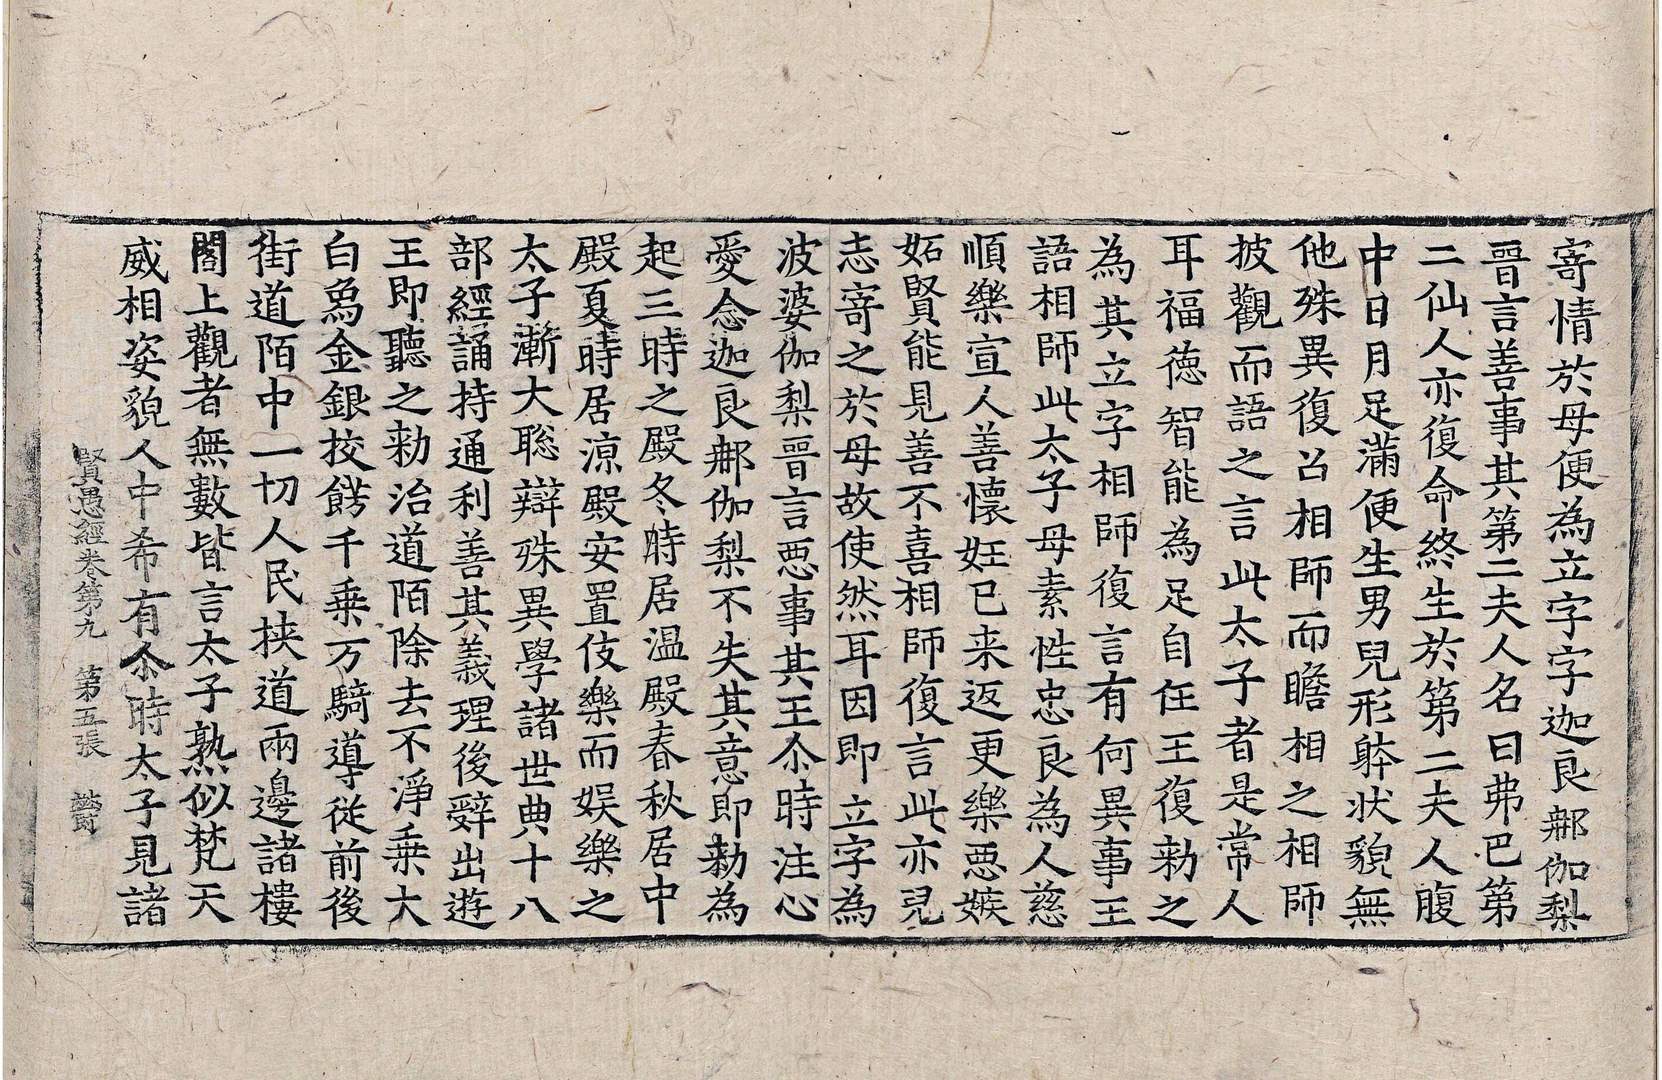 寄情於母便為立字字迦良那伽梨
晉言善事其第二夫人名曰弗巴第
二仙人亦復命終生於第二夫人腹
中日月足滿便生男兒形躰狀貌無
他殊異復召相師而瞻相之相師
披觀而語之言此太子者是常人
耳福德智能為足自任王復勑之
為其立字相師復言有何異事王
語相師此太子母素性忠良為人慈
順樂宣人善懷妊已来返更樂惡嫉
妬賢能見善不喜相師復言此亦兒
志寄之於母故使然耳因即立字為
波婆伽梨晉言惡事其王尒時注心
愛念迦良那伽梨不失其意即勑為
起三時之殿冬時居温殿春秋居中
殿夏時居涼殿安置伎樂而娛樂之
太子漸大聡辯殊異學諸世典十八
部經誦持通利善其義理後辭出遊
王即聽之勑治道陌除去不淨乗大
白象金銀挍餝千乗万騎導從前後
街道陌中一切人民挟道兩邊諸樓
閣上觀者無數皆言太子熟似梵天
威相姿貌人中希有尒時太子見諸
賢愚經卷第九 第五張